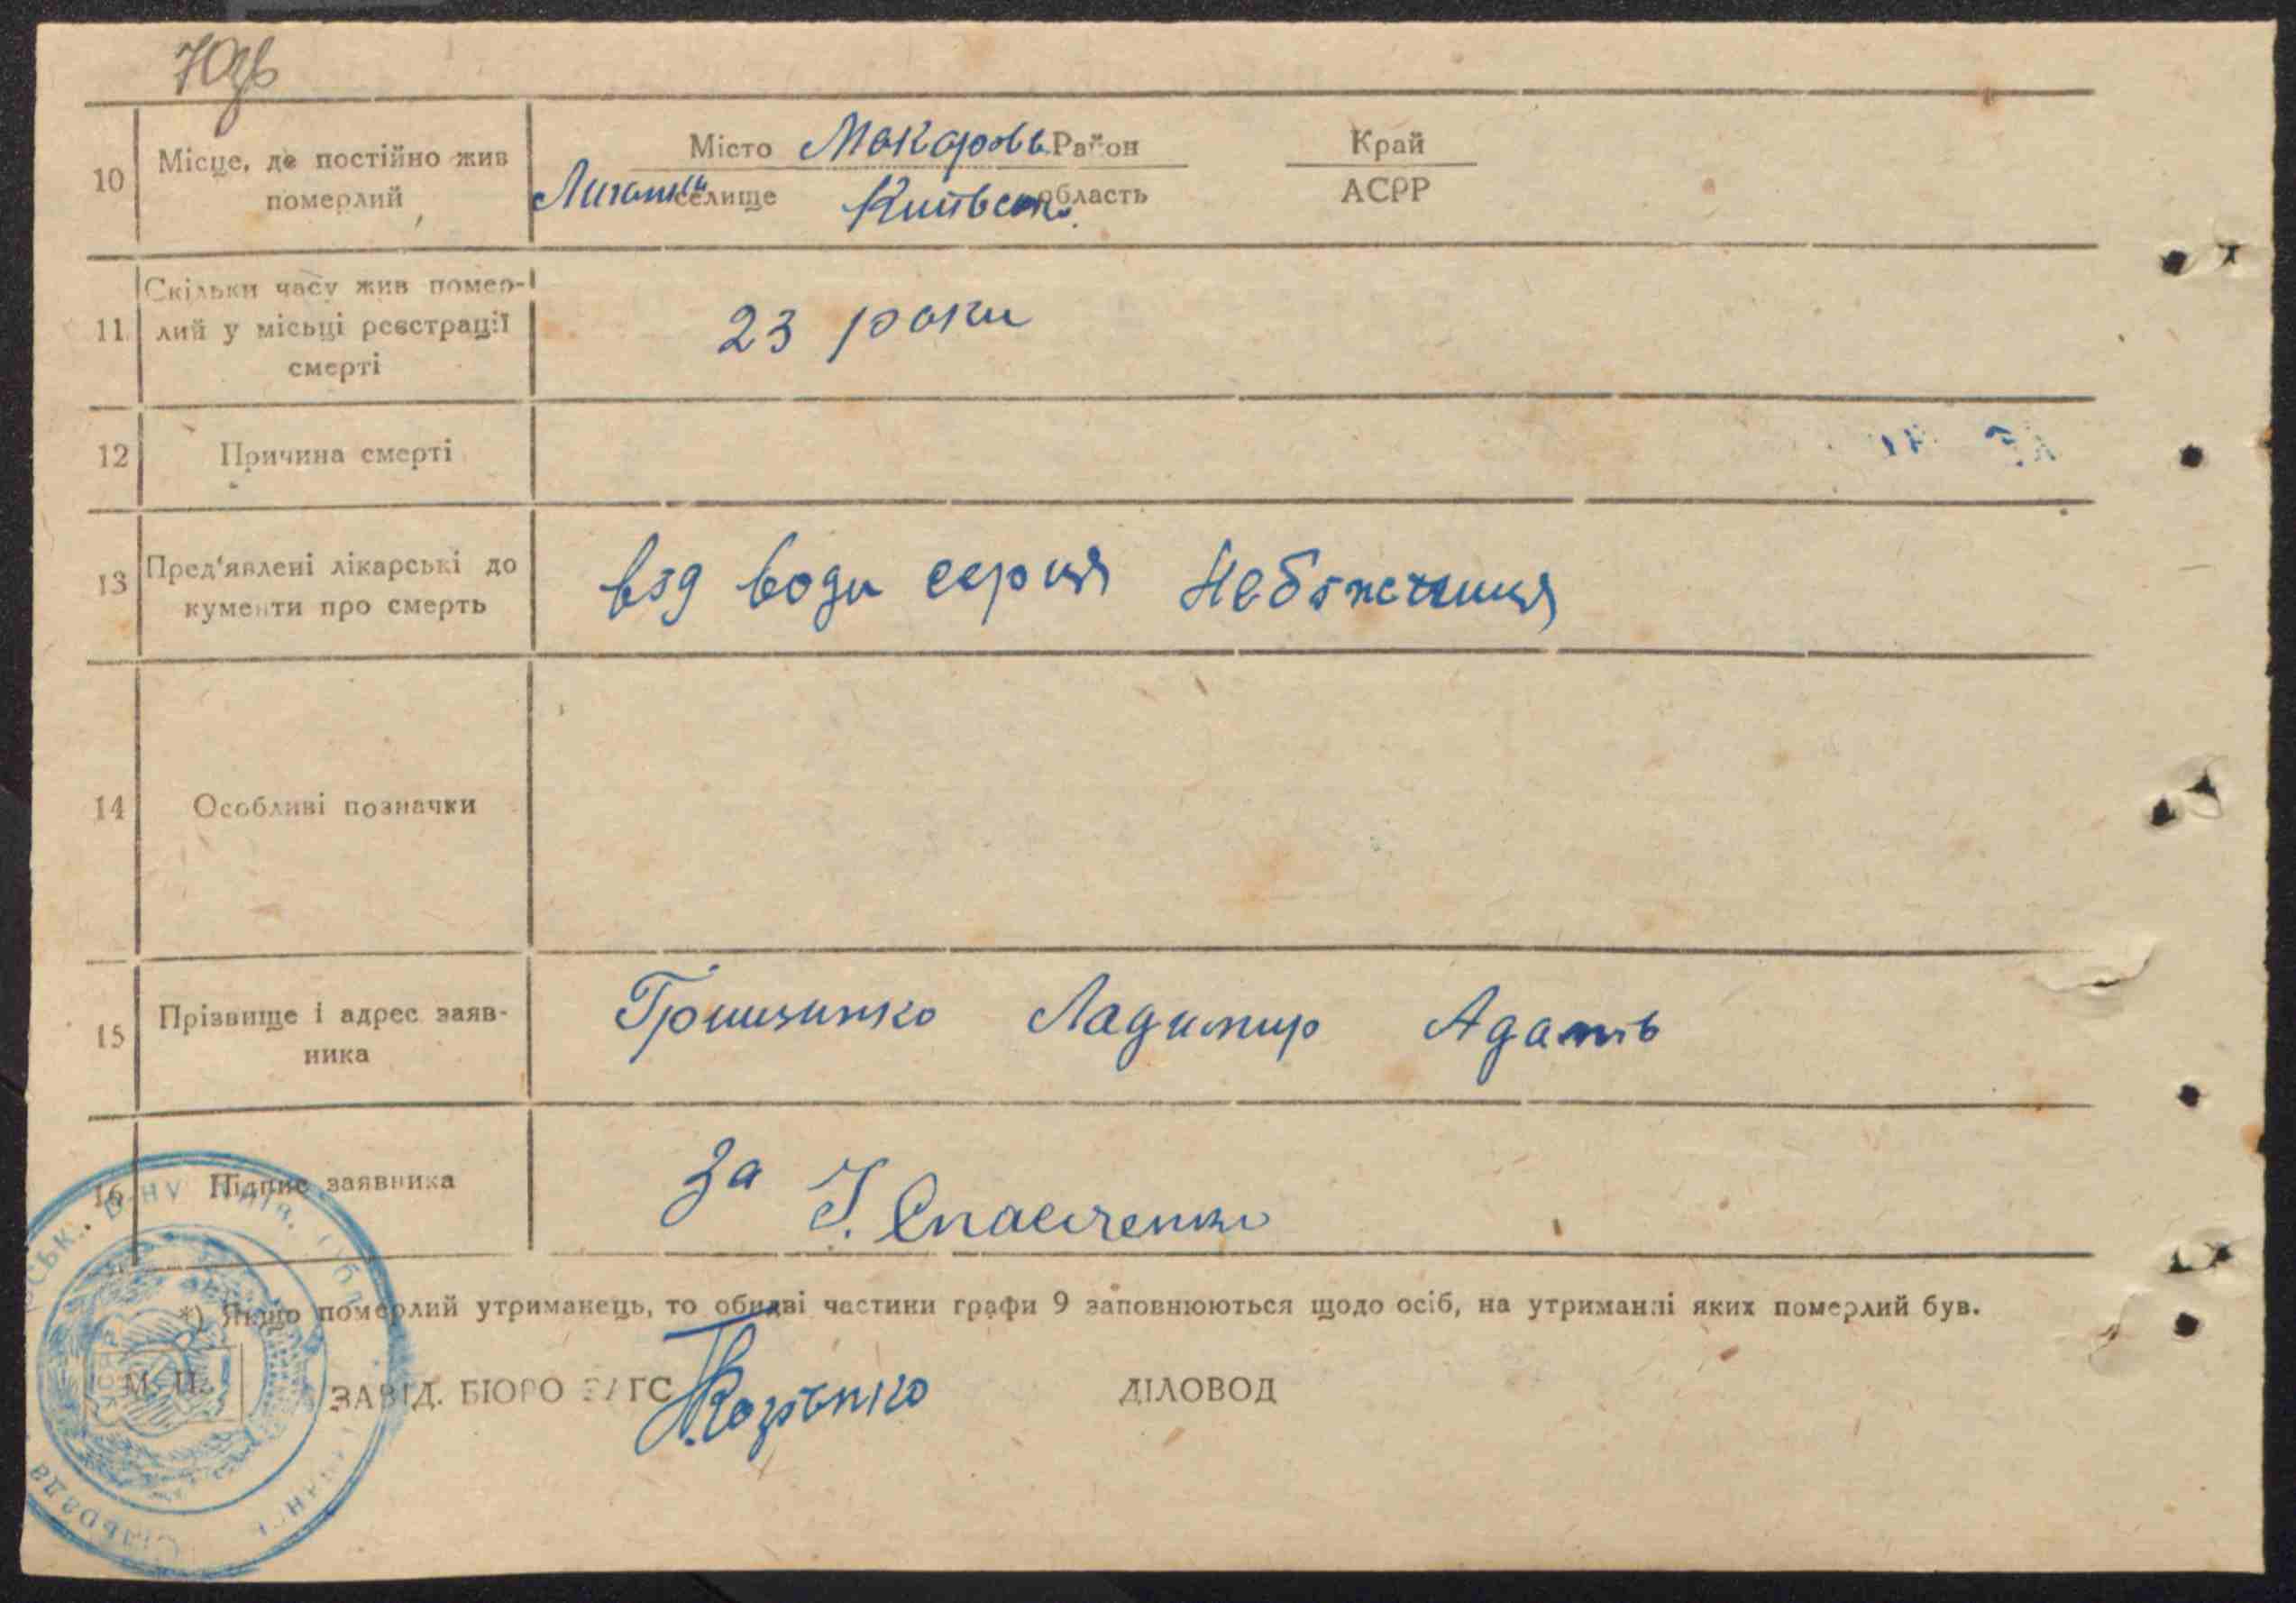 70зв
10 Місце, де постійно жив померлий
Місто Макарова Район Край
Лишан селище Київськ. область АСРР
11. Скільки часу жив помер-
лий у місьці реєстрації
смерті
23 роки
12 Причина смерті
13 Пред'явлені лікарські до
кументи про смерть
від води серця
14 Особливі позначки
15 Прізвище і адрес заяв-
ника
Грищинко Ладимир Адамів
16 Підпис заявника
За
*) Якщо померлий утриманець, то обидві частини графи 9 заповнюються щодо осіб, на утриманні яких померлий був.
М. П. ЗАВІД. БЮРО ЗАГС ДІЛОВОД